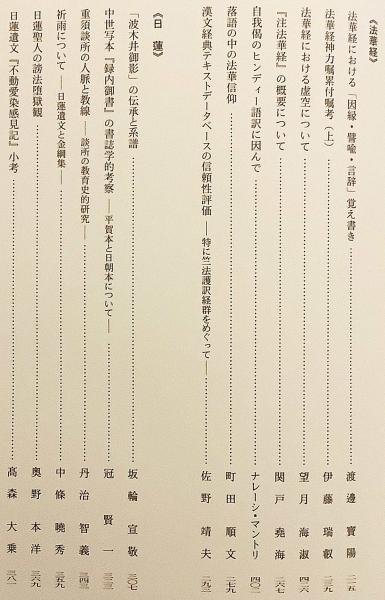 《法華経》
法華経における「因縁・譬喩・言辞」覚え書き……渡邊寶陽 二一五
法華経神力嘱累付嘱考（上）……伊藤瑞叡 二三九
法華経における虚空について……望月海淑 四三六
『注法華経』の概要について……関戸堯海 二六七
自我偈のヒンディー語訳に因んで……ナレーシ・マントリ 四〇二
落語の中の法華信仰……町田順文 二七九
漢文経典テキストデータベースの信頼性評価――特に竺法護訳経群をめぐって――……佐野靖夫 二九三
《日蓮》
「波木井御影」の伝承と系譜……坂輪宣敬 三〇七
中世写本『録内御書』の書誌学的考察――平賀本と日朝本について――……冠賢一 三二三
重須談所の人脈と教線――談所の教育史的研究――……丹治智義 三四三
祈雨について――日蓮遺文と金綱集――……中條曉秀 三五九
日蓮聖人の謗法堕獄観……奥野本洋 三六九
日蓮遺文『不動愛染感見記』小考……髙森大乗 三八一